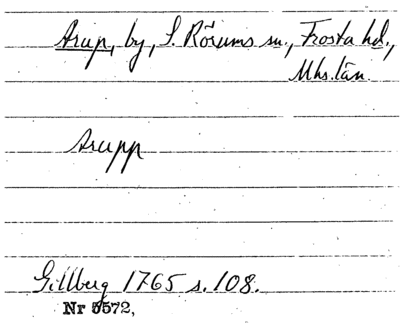 Arup, by, S. Rörums sn., Frosta hd.,
Mhs. län.
Arupp
Gillberg 1765 s. 108.
Nr 5572,